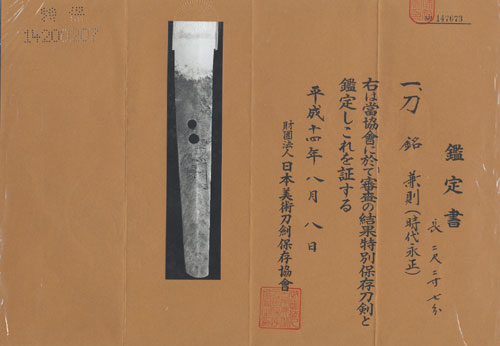 鑑定書
一、刀 銘 兼則(時代永正)
長 二尺二寸七分
右は當協會に於て審査の結果特別保存刀剣と
鑑定しこれを証する
平成十四年八月八日
財團法人 日本美術刀剣保存協會
No 147673